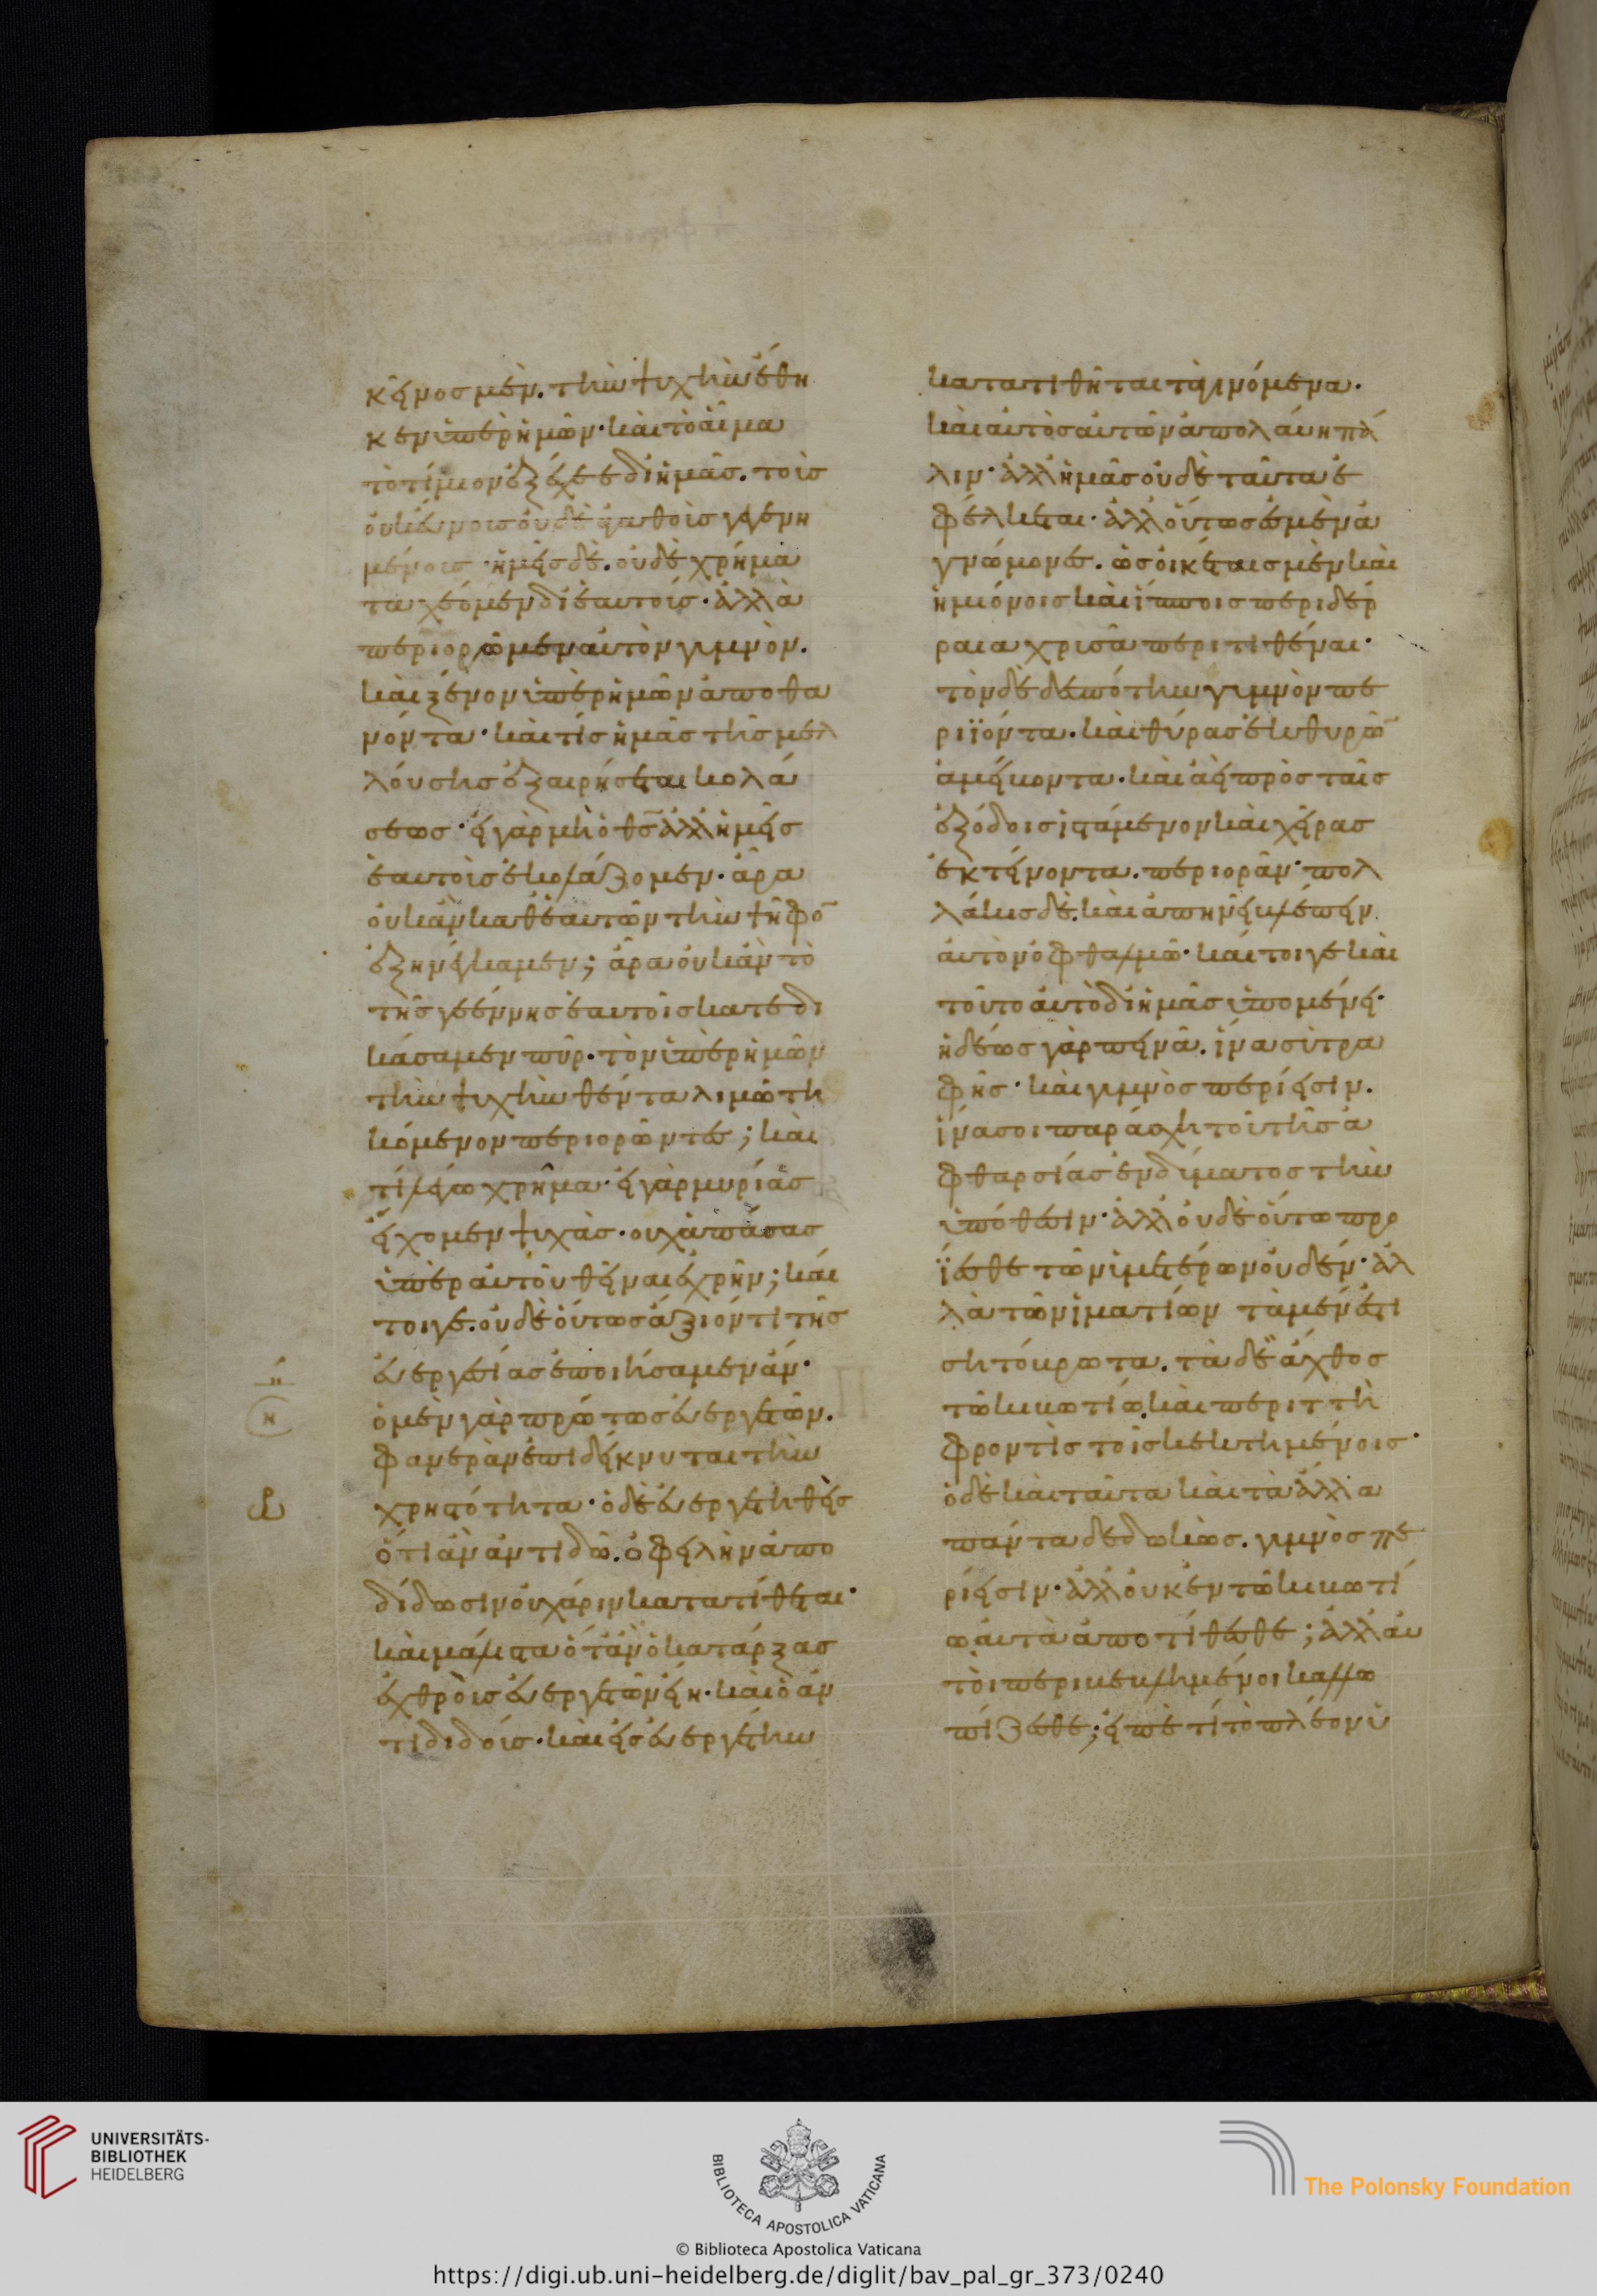 κεῖνος μὲν. τὴν ψυχὴν ἔθη
κεν ὑπὲρ ἡμῶν· καὶ τὸ αἷμα
τὸ τίμιον ἐξέχεε δι' ἡμᾶς. τοῖς
οὐκ εὔνοις οὐδὲ ἀγαθοῖς γεγενη
μένοις· ἡμεῖς δὲ. οὐδὲ χρήμα
τα χέομεν δι' ἑαυτούς· ἀλλὰ
περιορῶμεν αὐτὸν γυμνὸν.
καὶ ξένον ὑπὲρ ἡμῶν ἀποθα
νόντα· καὶ τίς ἡμᾶς τῆς μελ
λούσης ἐξαιρήσεται κολά
σεως· εἰ γὰρ μὴ ὁ θ̅ς̅ ἀλλ' ἡμεῖς
ἑαυτοὺς ἐκολάζομεν· ἆρα
οὐκ ἂν καθ' ἑαυτῶν τὴν ψῆφο̅
ἐξηνέγκαμεν; ἆρα οὐκ ἂν τὸ
τῆς γεέννης ἑαυτοῖς κατεδι
κάσαμεν πῦρ· τὸν ὑπὲρ ἡμῶν
τὴν ψυχὴν θέντα λιμῶ τη
κόμενον περιορῶντες; καὶ
τί λέγω χρῆμα· εἰ γὰρ μυρίας
εἴχομεν ψυχὰς· οὐχ ἁπάσας
ὑπὲρ αὐτοῦ θεῖναι ἐχρῆν; καί
τοιγε. οὐδὲ οὕτως ἄξιόν τι τῆς
εὐεργεσίας ἐποιήσαμεν ἄν·
ὁ μὲν γὰρ πρώτως εὐεργετῶν.
φανερὰν ἐπιδείκνυται τὴν
χρηστότητα· ὁ δὲ εὐεργετηθεὶς
ὅτι ἂν ἀντιδῶ. ὀφειλὴν ἀπο
δίδωσιν οὐ χάριν κατατίθεται·
καὶ μάλιστα ὅταν ὁ κατάρξας
ἐχθροὺς εὐεργετῶν εἴη· καὶ ὁ ἀν
τιδιδοὺς· καὶ εἰς εὐεργέτην
κατατιθῆται τὰ γινόμενα.
καὶ αὐτὸς αὐτῶν ἀπολαύη πά
λιν· ἀλλ' ἡμᾶς οὐδὲ ταῦτα ἐ
φέλκεται· ἀλλ' οὕτως ἐσμὲν ἀ
γνώμονες. ὡς οἰκέταις μὲν καὶ
ἡμιόνοις καὶ ἵπποις περιδέρ
ραια χρυσᾶ περιτιθέναι·
τὸν δὲ δεσπότην γυμνὸν πε
ριϊόντα. καὶ θύρας ἐκ θυρῶ̅
ἀμείβοντα. καὶ ἀεὶ πρὸς ταῖς
ἐξόδοις ἱστάμενον καὶ χεῖρας
ἐκτείνοντα. περιορᾶν· πολ
λάκις δὲ. καὶ ἀπηνεῖ βλέπειν
αὐτὸν ὀφθαλμῶ· καίτοιγε καὶ
τοῦτο αὐτὸ δι' ἡμᾶς ὑπομένει·
ἡδέως γὰρ πεινᾶ. ἵνα σὺ τρα
φῆς· καὶ γυμνὸς περίεισιν.
ἵνα σοι παράσχη τοῦ τῆς ἀ
φθαρσίας ἐνδύματος τὴν
ὑπόθεσιν· ἀλλ' οὐδὲ οὕτω προ
ΐεσθε τῶν ὑμετέρων οὐδέν· ἀλ
λὰ τῶν ἱματίων τὰ μέν ἐστι
σητόβρωτα. τὰ δὲ ἄχθος
τῶ κιβωτίω, καὶ περιττὴ
φροντὶς τοῖς κεκτημένοις·
ὁ δὲ καὶ ταῦτα καὶ τὰ ἄλλα
πάντα δεδωκὼς. γυμνὸς πε
ρίεισιν· ἀλλ' οὐκ ἐν τῶ κιβωτί
ω αὐτὰ ἀποτίθεσθε; ἀλλ' αὐ
τοὶ περιβεβλημένοι καλλω
πίζεσθε; εἶπέ τί τὸ πλέον ὑ